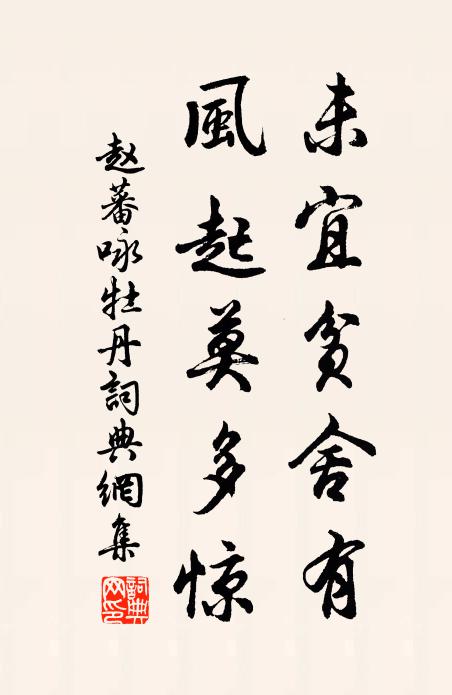 未宜貧舍有
風起莫多惊
赵蕃咏牡丹詞典網集
詞典網印